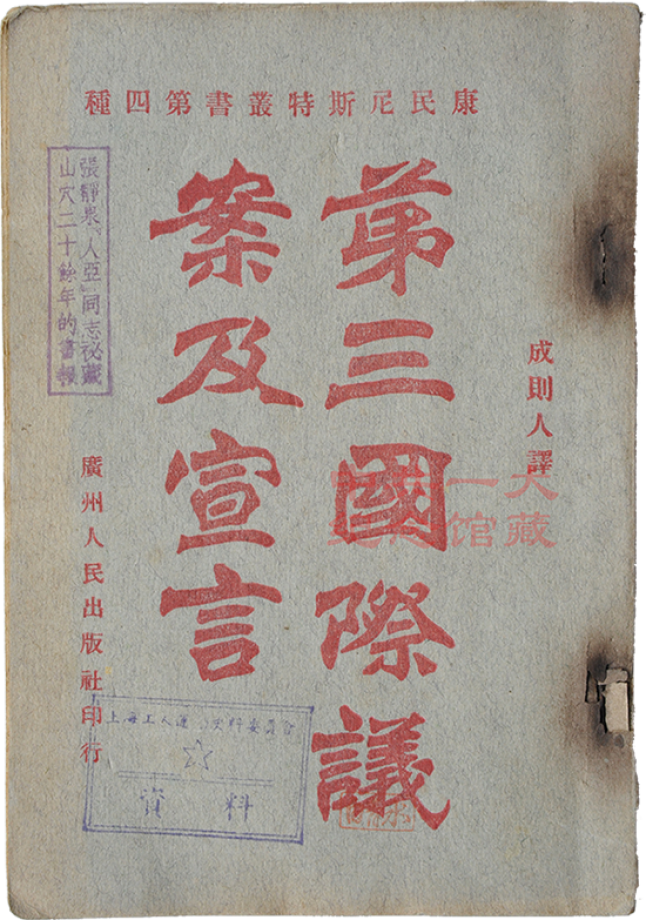 康民尼斯特叢書第四種
成則人譯
第三國際議
案及宣言
廣州人民出版社印行
張靜泉（人亞）同志祕藏
山穴二十餘年的書報
上海工人運動史料委員會
資料
大一
藏馆